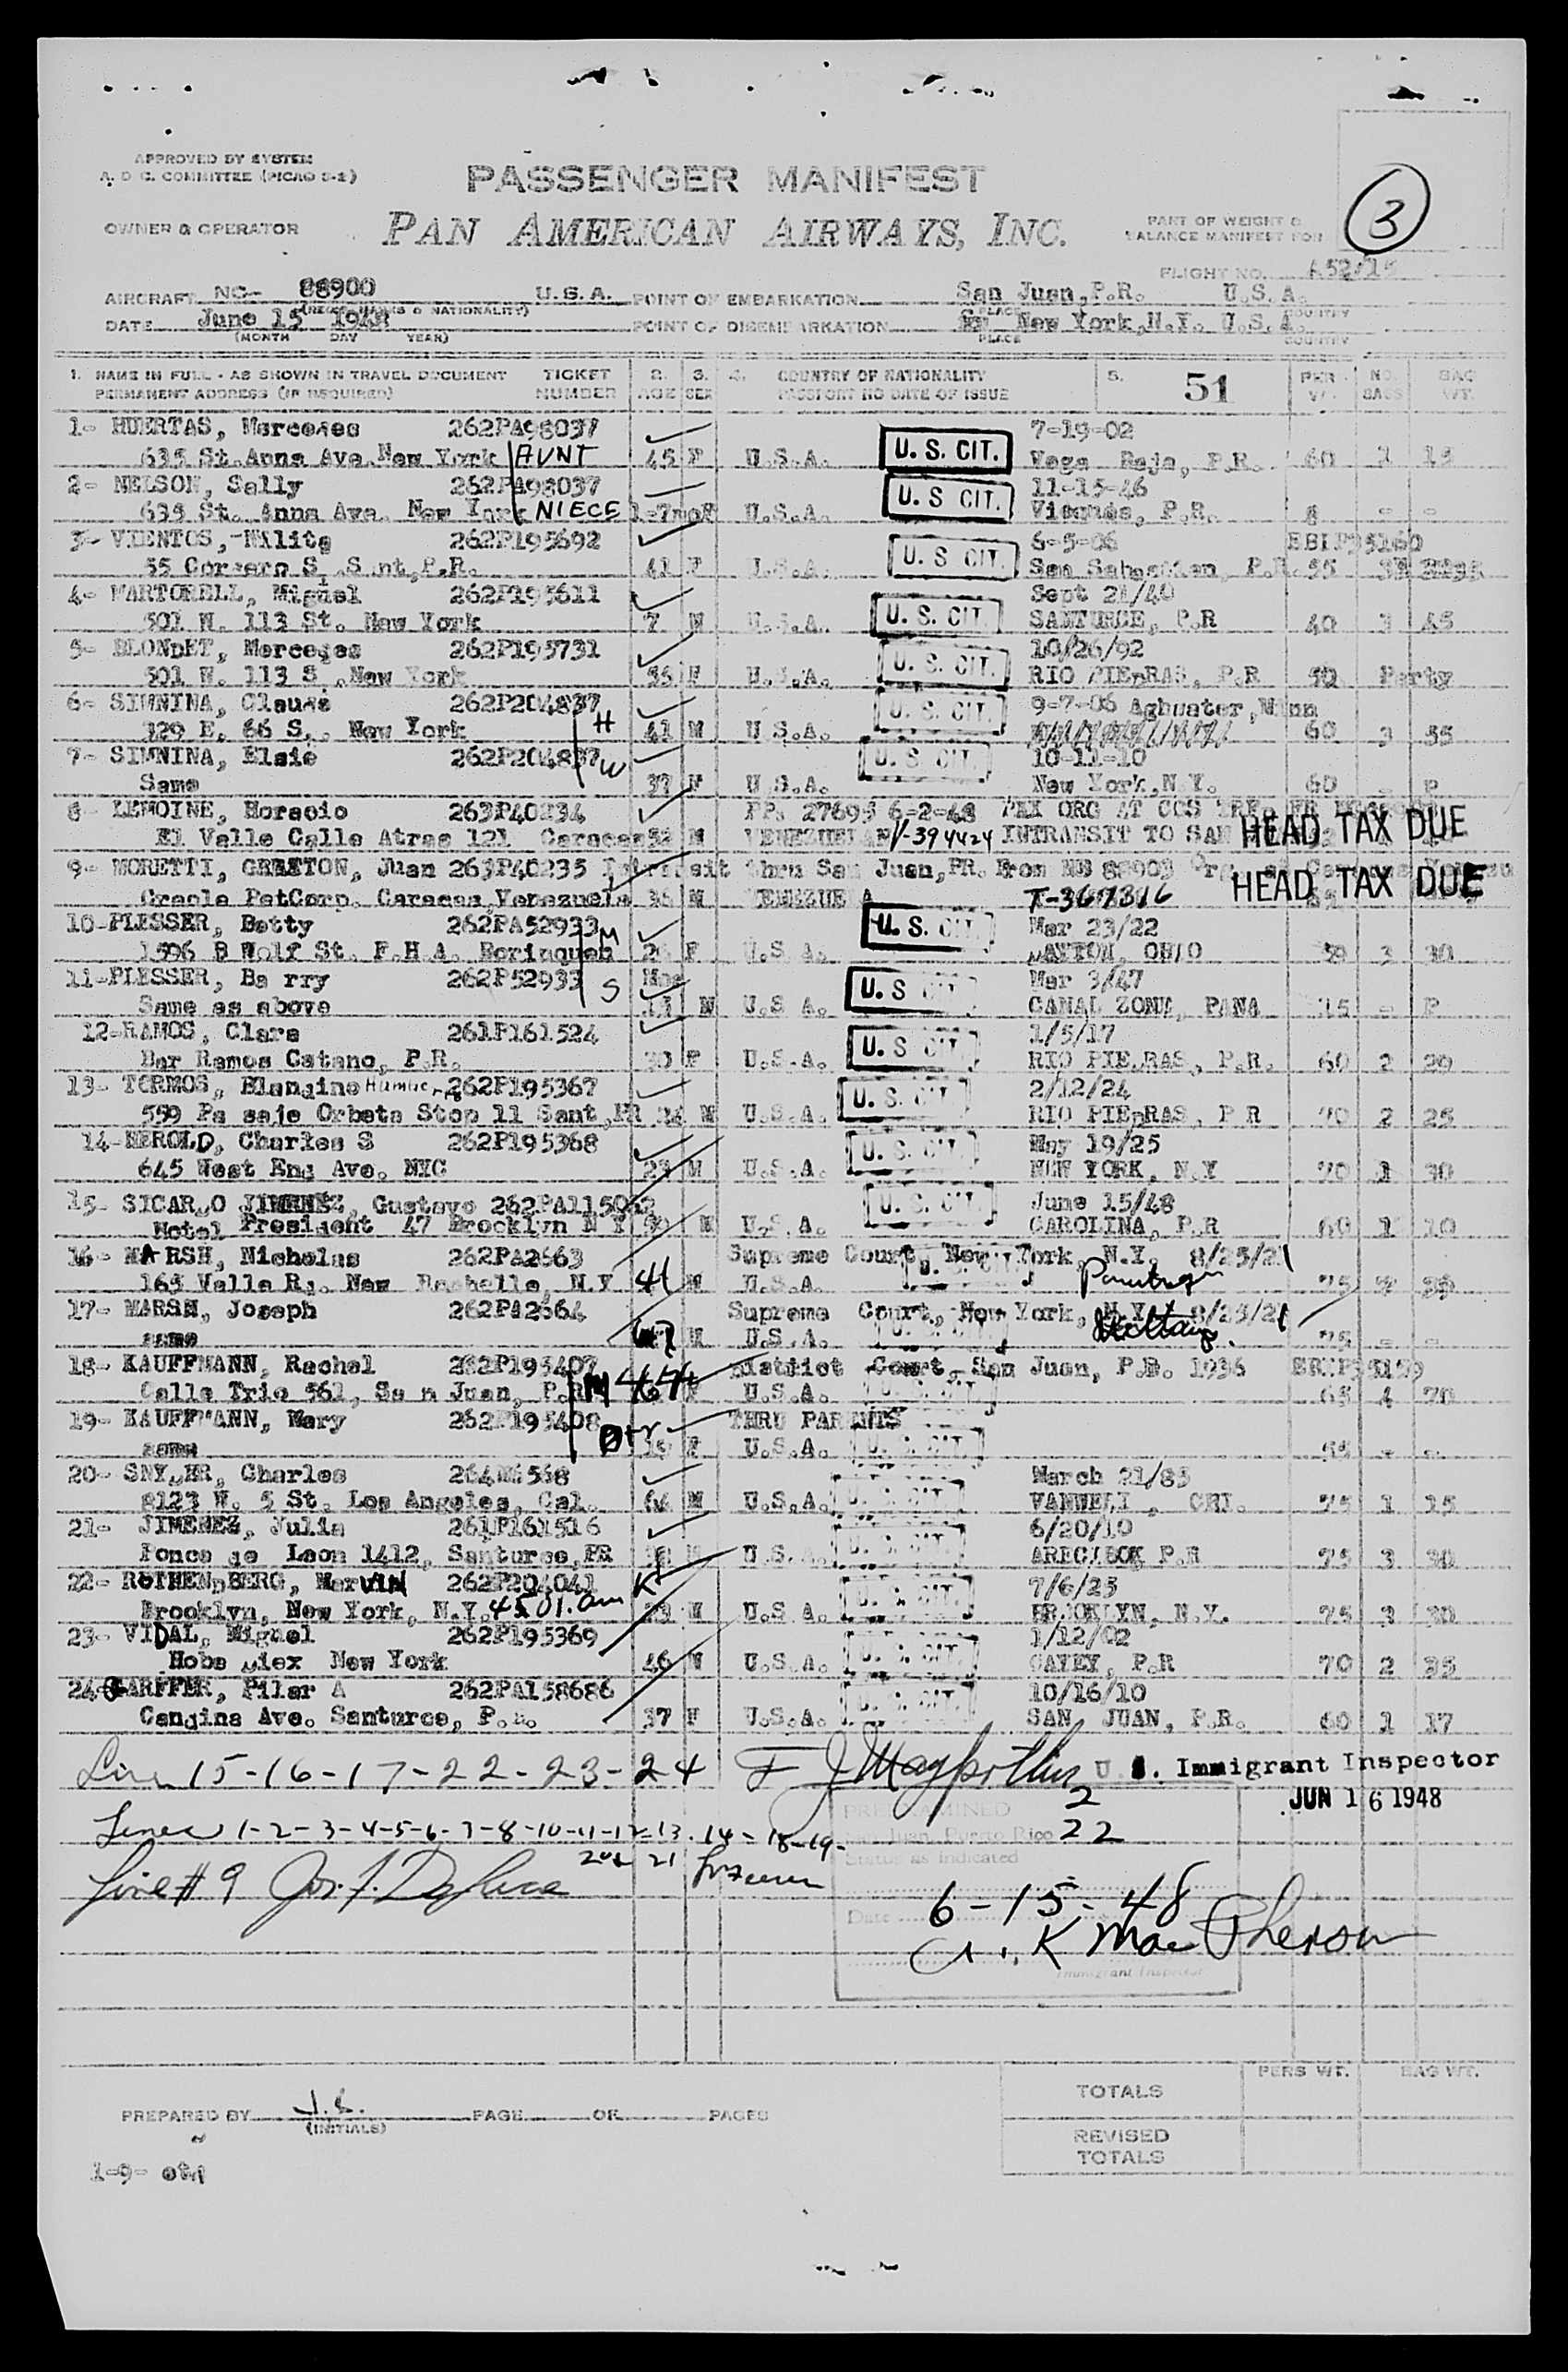 APPROVED BY SYSTEM
A. O C. COMMITTEE (PICAO S-2)
PASSENGER MANIFEST
3
OWNER & OPERATOR
PAN AMERICAN AIRWAYS, INC.
PART OF WEIGHT &
BALANCE MANIFEST FOR
FLIGHT NO. A52/15
AIRCRAFT NC- 88900 U.S.A. POINT OF EMBARKATION San Juan,P.R. U.S.A.
(REG. MARKS & NATIONALITY) PLACE COUNTRY
DATE June 15 1948 POINT OF DISEMBARKATION New York,N.Y. U.S.A.
(MONTH DAY YEAR) PLACE COUNTRY
1. NAME IN FULL - AS SHOWN IN TRAVEL DOCUMENT TICKET 2. 3. 4. COUNTRY OF NATIONALITY 5. 51 PER. NO. BAG
PERMANENT ADDRESS (IF REQUIRED) NUMBER AGE SEX PASSPORT NO DATE OF ISSUE WT. BAGS WT.
1- HUERTAS, Mercedes 262PA98037 7-19-02
635 St.Anns Ave.New York AUNT 45 F U.S.A. U. S. CIT. Vega Baja, P.R. 60 1 15
2- NELSON, Sally 262PA98037 11-15-46
635 St. Anns Ave. New York NIECE 1-7mo F U.S.A. U. S CIT. Vieques, P.R. 8 - -
3- VIENTOS, Milita 262P195692 6-5-06 EBIP95160
55 Corsern S .Sant,P.R. 41 F U.S.A. U. S CIT. San Sebastian, P.R. 55
4- MARTORELL, Miguel 262P195611 Sept 21/40
501 W. 113 St. New York 7 M U.S.A. U. S. CIT. SANTURCE, P.R 40 3 45
5- BLONDET, Mercedes 262P195731 10/26/92
501 W. 113 S .New York 55 F U.S.A. U. S. CIT. RIO PIEDRAS, P.R 50 Party
6- SIMNINA, Claude 262P204837 9-7-06 Aghwater,Minn
129 E. 66 S. New York H 41 M U.S.A. U. S. CIT. 60 3 55
7- SIMNINA, Elsie 262P204837 10-11-10
Same W 37 F U.S.A. U. S. CIT. New York,N.Y. 60 - P
8- LEMOINE, Horacio 263P40234 PP. 27695 6-2-48 PAX ORG AT CCS
El Valle Calle Atras 121 Caracas 52 M VENEZUELAN V-394424 INTRANSIT TO SAN HEAD TAX DUE
9- MORETTI, GRATTON, Juan 263P40235 Intransit thru San Juan,PR. From NC 88903
Creole PetCorp. Caracas,Venezuela 35 M T-367316 HEAD TAX DUE
10-PLESSER, Betty 262PA52933 Mar 23/22
1596 B Wolf St. F.H.A. Borinquen M 26 F U.S.A. U. S. CIT. DAYTON, OHIO 59 3 30
11-PLESSER, Ba rry 262P52933 Mos Mar 3/47
Same as above S M U.S A. U. S CIT. CANAL ZONE, PANA 15 - P
12-RAMOS, Clara 261P161524 1/5/17
Bar Ramos Catano, P.R. 30 F U.S.A. U. S CIT. RIO PIEDRAS, P.R. 60 2 20
13- TORMOS, Blandino 262P195367 2/12/24
559 Pa saje Orbeta Stop 11 Sant,PR 24 M U.S.A. U. S. CIT. RIO PIEDRAS, P R 70 2 25
14-HEROLD, Charles S 262P195368 May 19/25
645 West End Ave. NYC 23 M U.S.A. U. S. CIT. NEW YORK, N.Y 70 1 30
15- SICARDO JIMENEZ, Gustavo 262PA115062 June 15/48
Hotel President 47 Brooklyn N Y M U.S.A. U. S. CIT. CAROLINA, P.R 60 1 10
16- MARSH, Nicholas 262PA2663 Supreme Court, New York, N.Y. 8/25/21
165 Valle Rd. New Rochelle, N.Y 41 M U.S.A.
17- MARSH, Joseph 262PA2664 Supreme Court, New York, N.Y. 8/25/21
same M U.S.A. 75 - -
18- KAUFFMANN, Rachel 262P195407 District Court, San Juan, P.R. 1936
Calle Trio 561, Sa n Juan, P.R M F U.S.A. 65 4 70
19- KAUFFMANN, Mary 262P195408 THRU PARENTS
same Dtr F U.S.A. U. S. CIT. 55 - -
20- SNYDER, Charles March 21/85
8123 W. 5 St. Los Angeles, Cal. 64 M U.S.A. U. S. CIT. 75 1 15
21- JIMENEZ, Julia 261P161516 6/20/10
Ponce de Leon 1412, Santurce,PR U.S.A. ARECIBOK P.R 75 3 30
22- ROTHENDBERG, MarVIN 262P204041 7/6/25
Brooklyn, New York, N.Y. M U.S A. U. S. CIT. BROOKLYN, N.Y. 75 3 30
23- VIDAL, Miguel 262P195369 1/12/02
New York 46 M U.S.A. U. S. CIT. CAYEY, P.R 70 2 35
24- GARFFER, Pilar A 262PA158686 10/16/10
Candina Ave. Santurce, P.R. 37 F U.S.A. U. S. CIT. SAN JUAN, P.R. 60 1 17
Line 15-16-17-22-23-24 U.S. Immigrant Inspector
JUN 16 1948
PRE-EXAMINED 2
Lines 1-2-3-4-5-6-7-8-10-11-12-13-14-18-19- San Juan, Puerto Rico 22
20 & 21 Status as indicated
Line # 9
Date 6-15-48
K MacPherson
Immigrant Inspector
PERS WT. BAG WT.
TOTALS
PREPARED BY J.L. PAGE OF PAGES
(INITIALS)
REVISED
TOTALS
1-9-